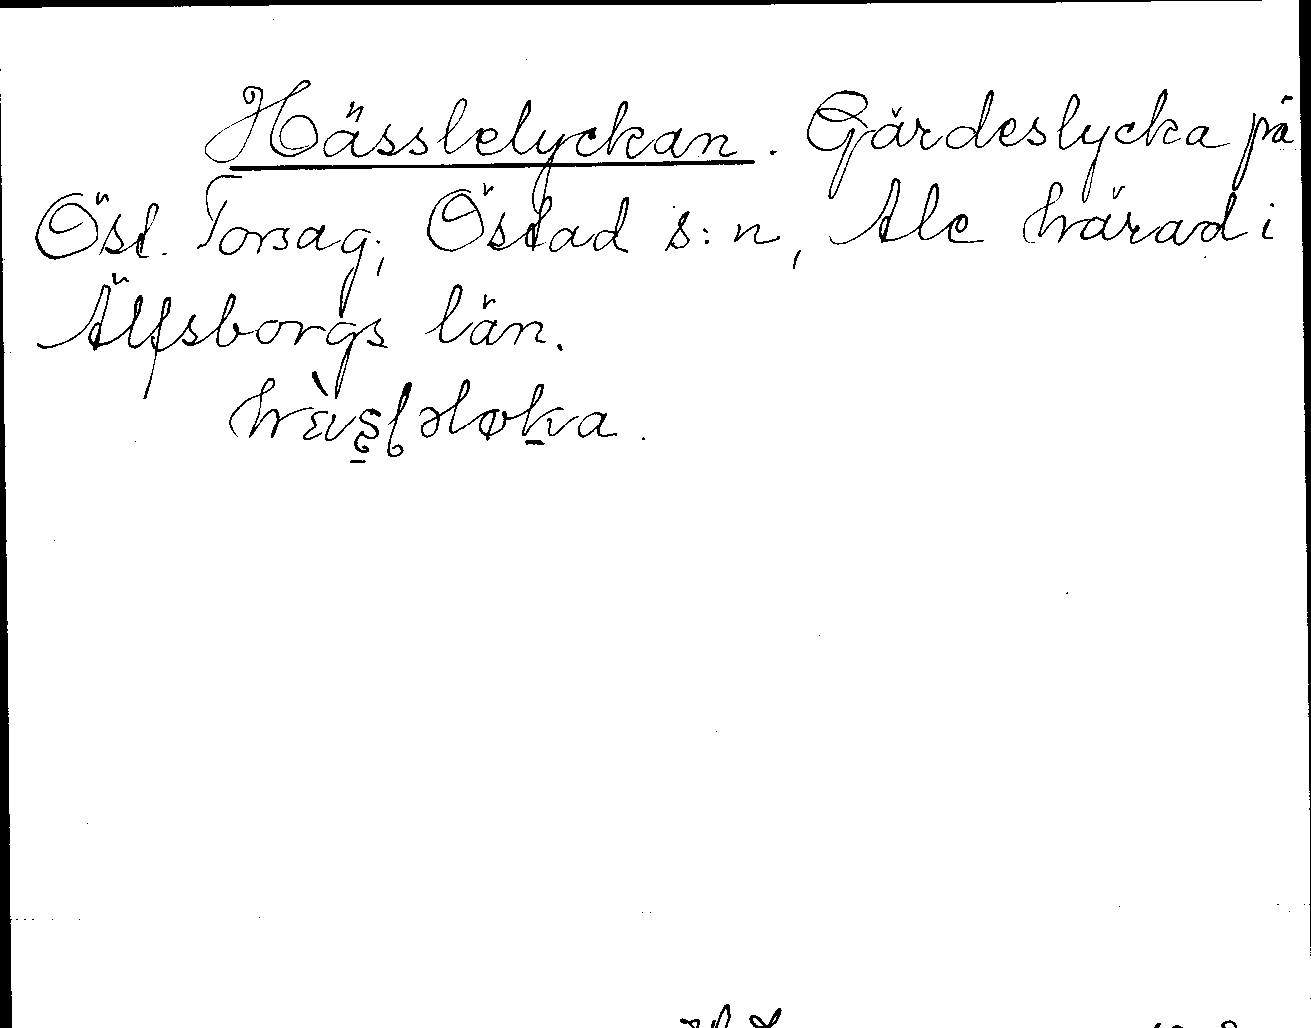 Hässlelyckan. Gärdeslycka på
Öst. Torsag, Östad s:n, Ale härad i
Älfsborgs län.